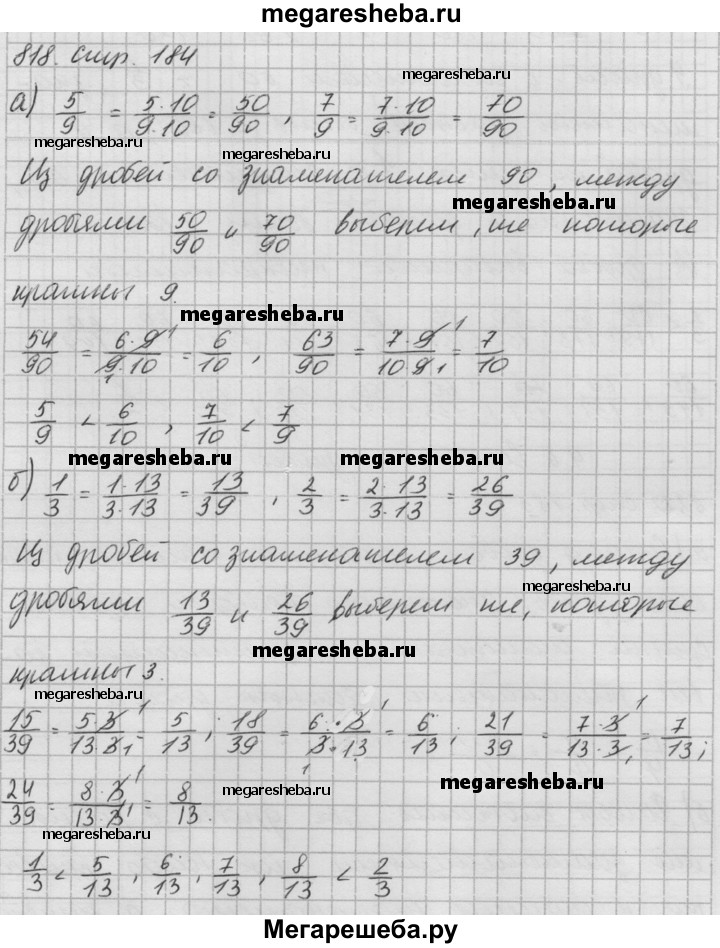 megaresheba.ru
818. стр. 184
megaresheba.ru
а) 5/9 = 5·10/9·10 = 50/90, 7/9 = 7·10/9·10 = 70/90
megaresheba.ru
megaresheba.ru
Из дробей со знаменателем 90, между
megaresheba.ru
дробями 50/90 и 70/90 выберем, те которые
кратны 9.
megaresheba.ru
54/90 = 6·9/9·10 = 6/10, 63/90 = 7·9/10·9 = 7/10
5/9 < 6/10, 7/10 < 7/9
megaresheba.ru megaresheba.ru
б) 1/3 = 1·13/3·13 = 13/39, 2/3 = 2·13/3·13 = 26/39
Из дробей со знаменателем 39, между
megaresheba.ru
дробями 13/39 и 26/39 выберем те, которые
megaresheba.ru
кратны 3.
megaresheba.ru
15/39 = 5·3/13·3 = 5/13; 18/39 = 6·3/3·13 = 6/13; 21/39 = 7·3/13·3 = 7/13;
megaresheba.ru megaresheba.ru
24/39 = 8·3/13·3 = 8/13.
megaresheba.ru
1/3 < 5/13, 6/13, 7/13, 8/13 < 2/3
megaresheba.ru
megaresheba.ru
Мегарешеба.ру